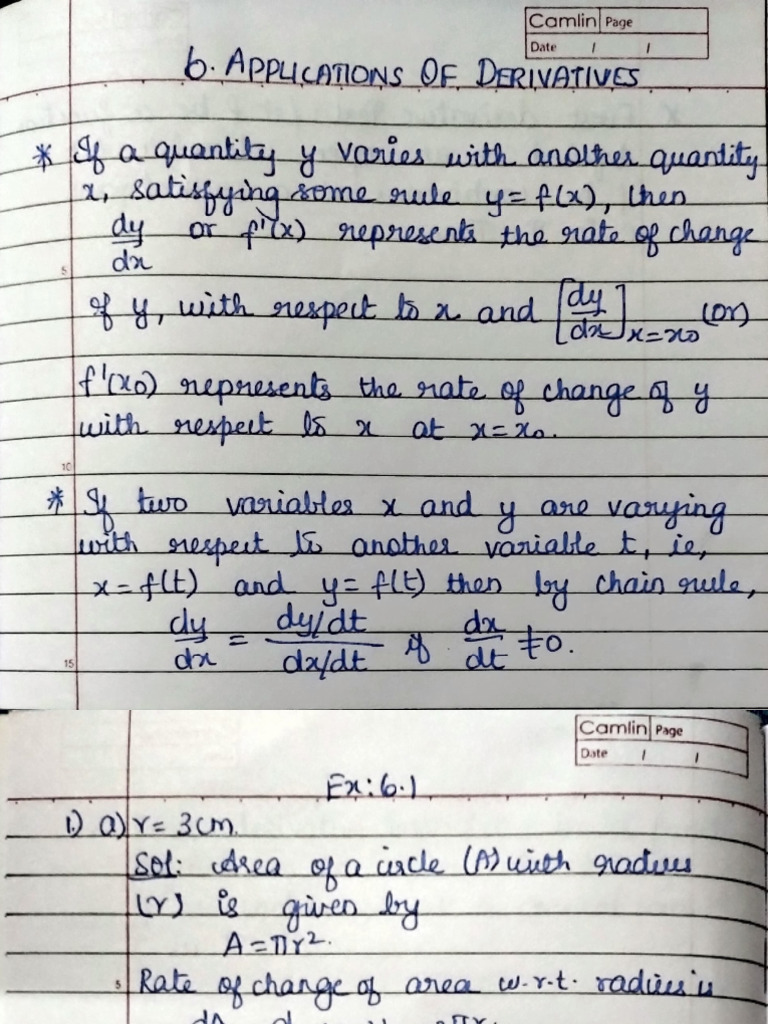 Camlin Page
Date / /
6. APPLICATIONS OF DERIVATIVES
* If a quantity y varies with another quantity
x, satisfying some rule y = f(x), then
dy/dx or f'(x) represents the rate of change
5
of y, with respect to x and [dy/dx]x=x0 (or)
f'(x0) represents the rate of change of y
with respect to x at x = x0.
10
* If two variables x and y are varying
with respect to another variable t, ie,
x = f(t) and y = f(t) then by chain rule,
dy/dx = (dy/dt)/(dx/dt) if dx/dt ≠ 0.
15
Camlin Page
Date / /
Ex: 6.1
1) a) r = 3cm.
Sol: Area of a circle (A) with radius
(r) is given by
A = πr².
5
Rate of change of area w.r.t. radius is